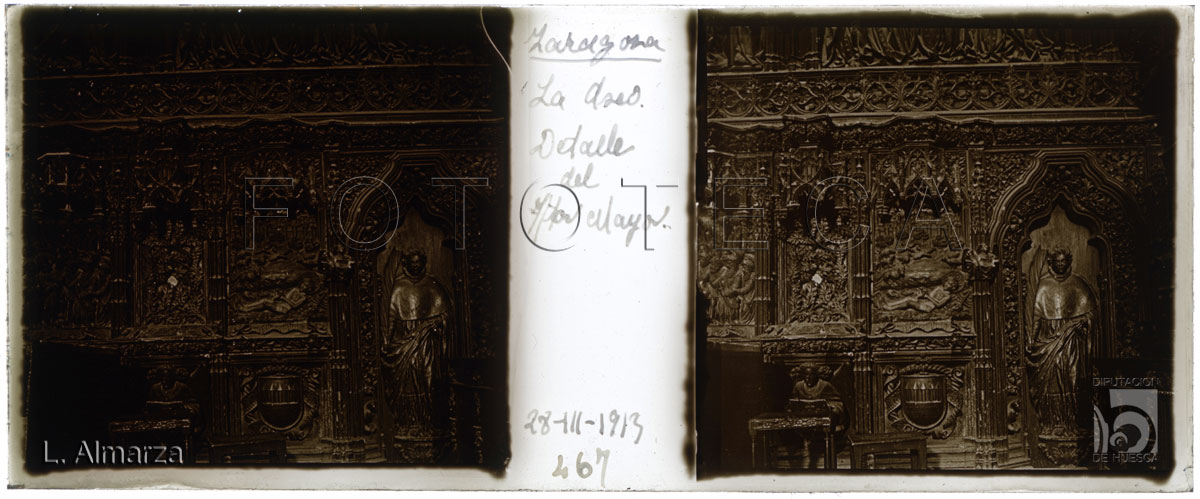 Zaragoza
La Aseo.
Detalle
del
Altar Mayor.
FOTOTECA
28-III-1913
467
L. Almarza
DIPUTACIÓN
DE HUESCA